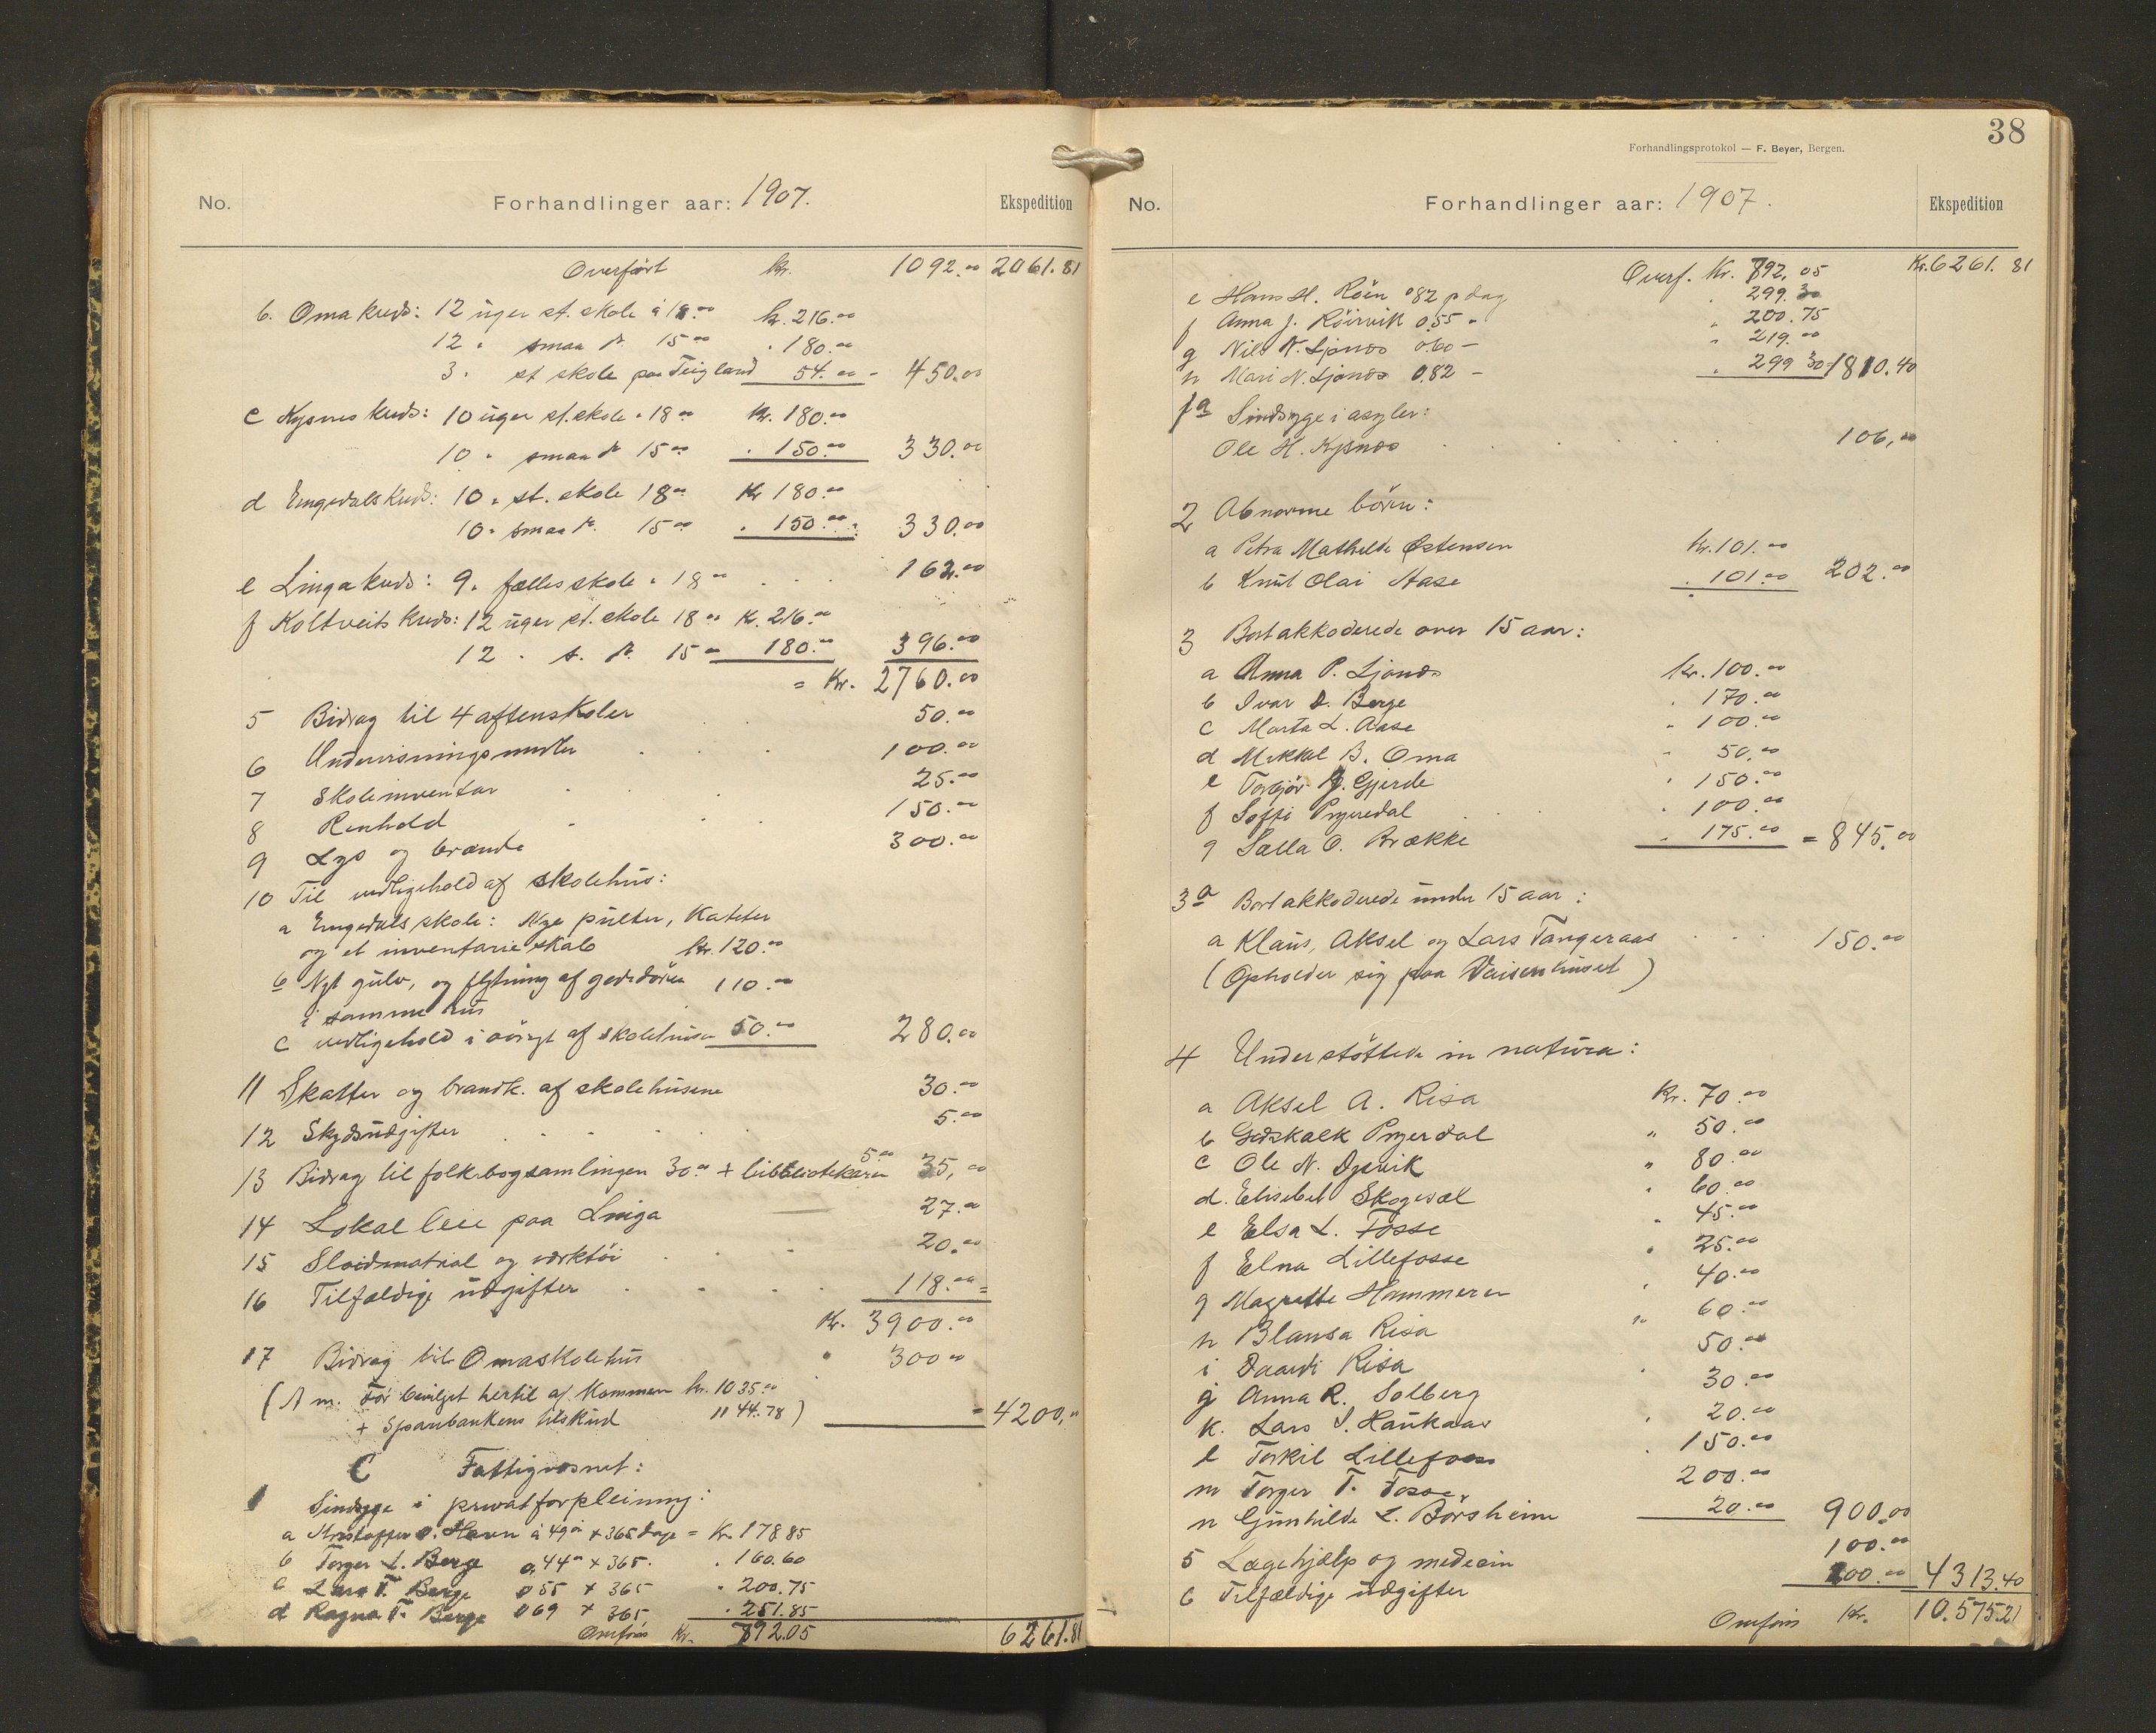 No. Forhandlinger aar: 1907. Ekspedition
Overført kr. 1092.00 2061.81
b. Oma kreds: 12 uger st. skole á 18.00 kr. 216.00
12 " smaa sk. 15.00 " 180.00
3 " st skole paa Teigland 54.00 = 450.00
c Kysnes kreds: 10 uger st. skole " 18.00 Kr. 180.00
10 " smaa sk 15.00 " 150.00 330.00
d Engedals kreds: 10 " st. skole 18.00 Kr 180.00
10 " smaa sk. 15.00 " 150.00 330.00
e Linga kreds: 9 " fælles skole " 18.00 162.00
f Koltveits kreds: 12 uger st. skole 18.00 K. 216.00
12 " s. sk. 15.00 180.00 396.00
= Kr. 2760.00
5 Bidrag til 4 aftenskoler 50.00
6 Undervisningsmidler 100.00
7 Skoleinventar 25.00
8 Renhold 150.00
9 Lys og brænde 300.00
10 Til vedligehold af skolehus:
a Engedals skole: Nye pulter, Kateter
og et inventarieskab kr. 120.00
b Nyt gulv, og flytning af
110.00
i samme hus
c vedligehold i øvrigt af skolehusene 50.00 280.00
11 Skatter og brandk. af skolehusene 30.00
12 Skydsudgifter 5.00
13 Bidrag til folkebogsamlingen 30.00 + bibliotekaren 5.00 35,00
14 Lokalleie paa Linga 27.00
15 Sløidmatrial og værktøi 20.00
16 Tilfældige udgifter 118.00 =
Kr. 3900.00
17 Bidrag til Omaskolehus " 300.00
(N m. Før bevilget hertil af Kommunen kr. 1035.00
+ Sparebankens tilskud 1144.78) = 4200,00
C Fattigvæsnet:
1 Sindsyge i privatforpleining:
a Kristoffer O. Havn á 49 øre x 365 dage = Kr. 178.85
b Torger L. Berge 0,44 x 365. " 160.60
c Lars T. Berge 0 55 x 365 " 200.75
d Ragna T. Berge 0 69 x 365 " 251.85
Overføres Kr. 792.05 6261.81
38
Forhandlingsprotokol — F. Beyer, Bergen.
No. Forhandlinger aar: 1907. Ekspedition
Overf. Kr. 792.05 Kr. 6261.81
e Hans H. Röen 0 82 p dag " 299.30
f Anna J. Röirvik 0.55 " " 200.75
g Nils N. Ljonæs 0.60 — " 219.00
h Mari N. Ljonæs 0.82 — " 299 30 = 1810.40
1a Sindsyge i asyler:
Ole H. Kysnæs 106,00
2 Abnorme börn:
a Petra Mathilde Østensen kr. 101.00
b Knut Olai Aase " 101.00 202.00
3 Bortakkoderede over 15 aar:
a Anna P. Ljonæs kr. 100.00
b Ivar S. Berge " 170.00
c Marta L. Aase " 100.00
d Mikkel B. Oma " 50.00
e Torbjör J. Gjerde " 150.00
f Soffi " 100.00
g Salla O. Brække " 175.00 = 845.00
3a Bortakkoderede under 15 aar:
a Klaus, Aksel og Lars Tangeraas 150.00
(Opholder sig paa Vaisenhuset)
4 Understöttede in natura:
a Aksel A. Risa Kr. 70.00
b Godskalk " 50.00
c Ole N. Dysvik " 80.00
d. Elisebet Skogesæl " 60.00
e Elsa L. Fosse " 45.00
f Elna Lillefosse " 25.00
g Magrette Hammeren " 40.00
h Blansa Risa " 60.00
i Daardi Risa 50.00
j Anna R. Solberg " 30.00
k. Lars S. Haukaas " 20.00
l Torkil Lillefosse " 150.00
m Torger T. Fosse 200.00
n Gunhilde L. Börsheim 20.00 900.00
5 Lægehjælp og medecin 100.00
6 Tilfældige udgifter 200.00 4313.40
Overføres Kr. 10.575.21